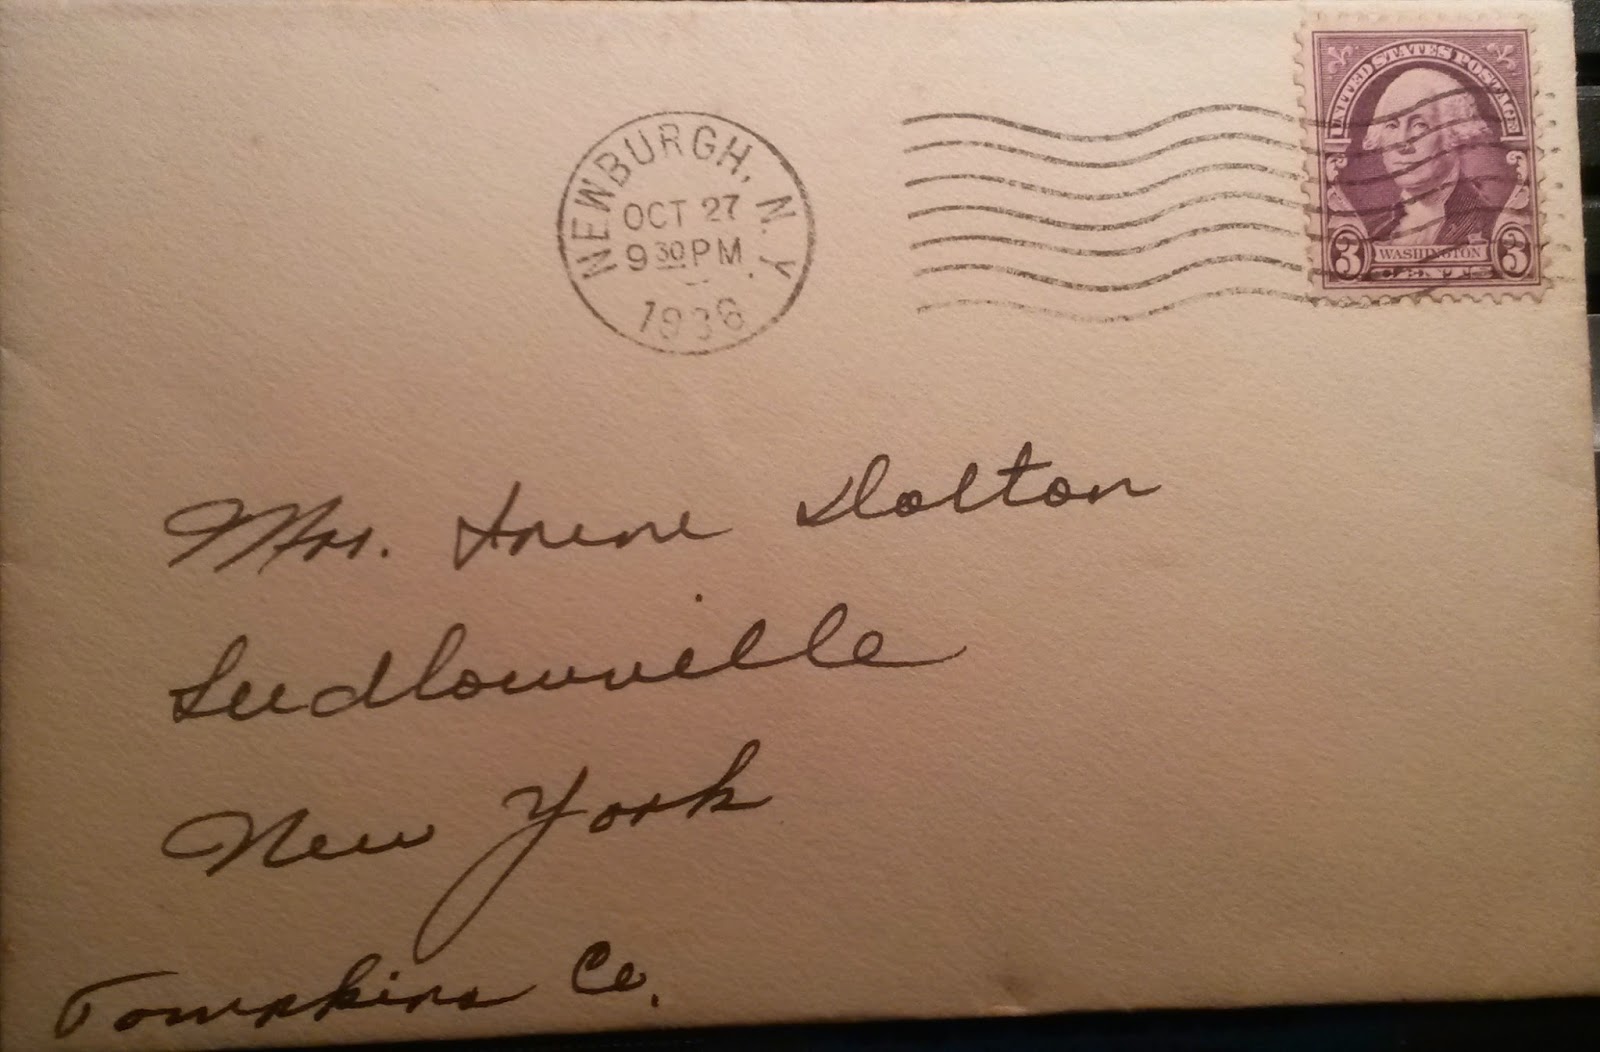 UNITED STATES POSTAGE
WASHINGTON
3 3
NEWBURGH, N.Y.
OCT 27
9 30 PM
1936
Mrs. Irene Dolton
Ludlowville
New York
Tompkins Co.